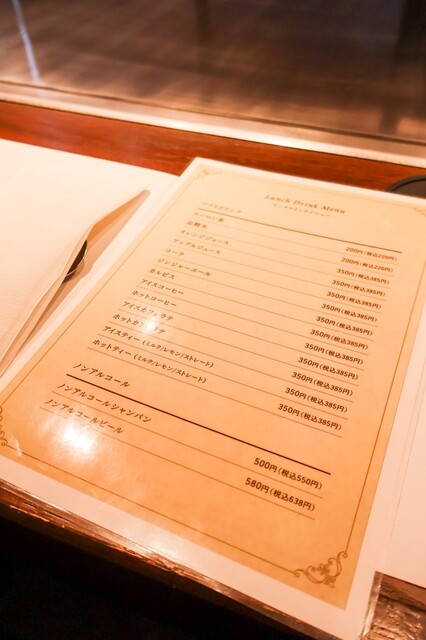 Lunch Drink Menu
ランチドリンクメニュー
ソフトドリンク
ウーロン茶 200円(税込220円)
炭酸水 200円(税込220円)
オレンジジュース 350円(税込385円)
アップルジュース 350円(税込385円)
コーラ 350円(税込385円)
ジンジャーエール 350円(税込385円)
カルピス 350円(税込385円)
アイスコーヒー 350円(税込385円)
ホットコーヒー 350円(税込385円)
アイスカフェラテ 350円(税込385円)
ホットカフェラテ 350円(税込385円)
アイスティー (ミルク/レモン/ストレート) 350円(税込385円)
ホットティー (ミルク/レモン/ストレート) 350円(税込385円)
ノンアルコール
ノンアルコールシャンパン 500円(税込550円)
ノンアルコールビール 580円(税込638円)